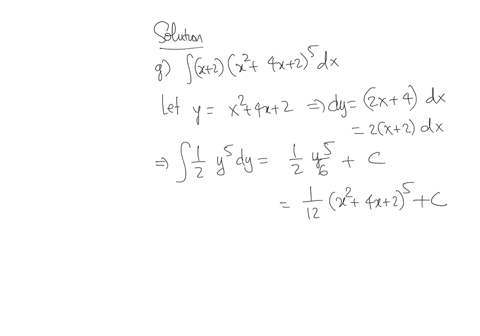 Solution
g) ∫(x+2)(x²+ 4x+2)⁵dx
Let y = x²+4x+2 ⇒ dy = (2x+4) dx
= 2(x+2) dx
⇒ ∫ 1/2 y⁵ dy = 1/2 y⁵/6 + C
= 1/12 (x²+ 4x+2)⁵ + C